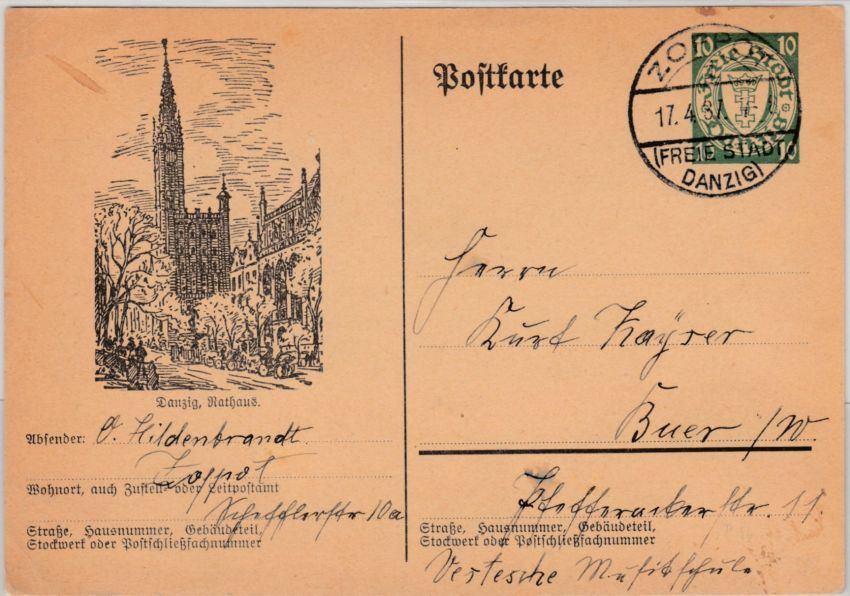 Postkarte
10 10
Freie Stadt
10
ZOPPOT
17. 4. 37.
(FREIE STADT
DANZIG)
Danzig, Rathaus.
Absender: O. Hildenbrandt.
Zoppot
Wohnort, auch Zustell- oder Leitpostamt
Schefflerstr 10a
Straße, Hausnummer, Gebäudeteil,
Stockwerk oder Postschließfachnummer
Herrn
Kurt Kayser
Buer /W.
Pfefferackerstr. 11
Straße, Hausnummer, Gebäudeteil,
Stockwerk oder Postschließfachnummer
Vestesche Musikschule